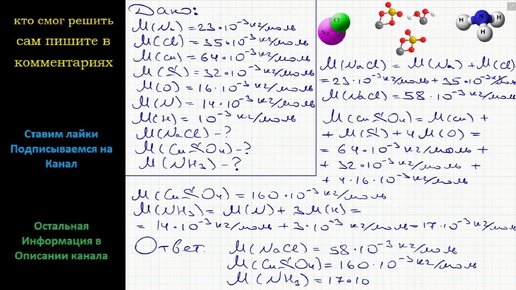 кто смог решить
сам пишите в
комментариях
Ставим лайки
Подписываемся на
Канал
Остальная
Информация в
Описании канала
Дано:
M(Na) = 23·10⁻³ кг/моль
M(Cl) = 35·10⁻³ кг/моль
M(Cu) = 64·10⁻³ кг/моль
M(S) = 32·10⁻³ кг/моль
M(O) = 16·10⁻³ кг/моль
M(N) = 14·10⁻³ кг/моль
M(H) = 10⁻³ кг/моль
M(NaCl) - ?
M(CuSO₄) - ?
M(NH₃) - ?
Na
Cl
H
N
H
H
M(NaCl) = M(Na) + M(Cl)
= 23·10⁻³ кг/моль + 35·10⁻³ кг/моль
M(NaCl) = 58·10⁻³ кг/моль
M(CuSO₄) = M(Cu) +
+ M(S) + 4M(O) =
= 64·10⁻³ кг/моль +
+ 32·10⁻³ кг/моль +
+ 4·16·10⁻³ кг/моль
M(CuSO₄) = 160·10⁻³ кг/моль
M(NH₃) = M(N) + 3M(H) =
= 14·10⁻³ кг/моль + 3·10⁻³ кг/моль = 17·10⁻³ кг/моль
Ответ: M(NaCl) = 58·10⁻³ кг/моль
M(CuSO₄) = 160·10⁻³ кг/моль
M(NH₃) = 17·10